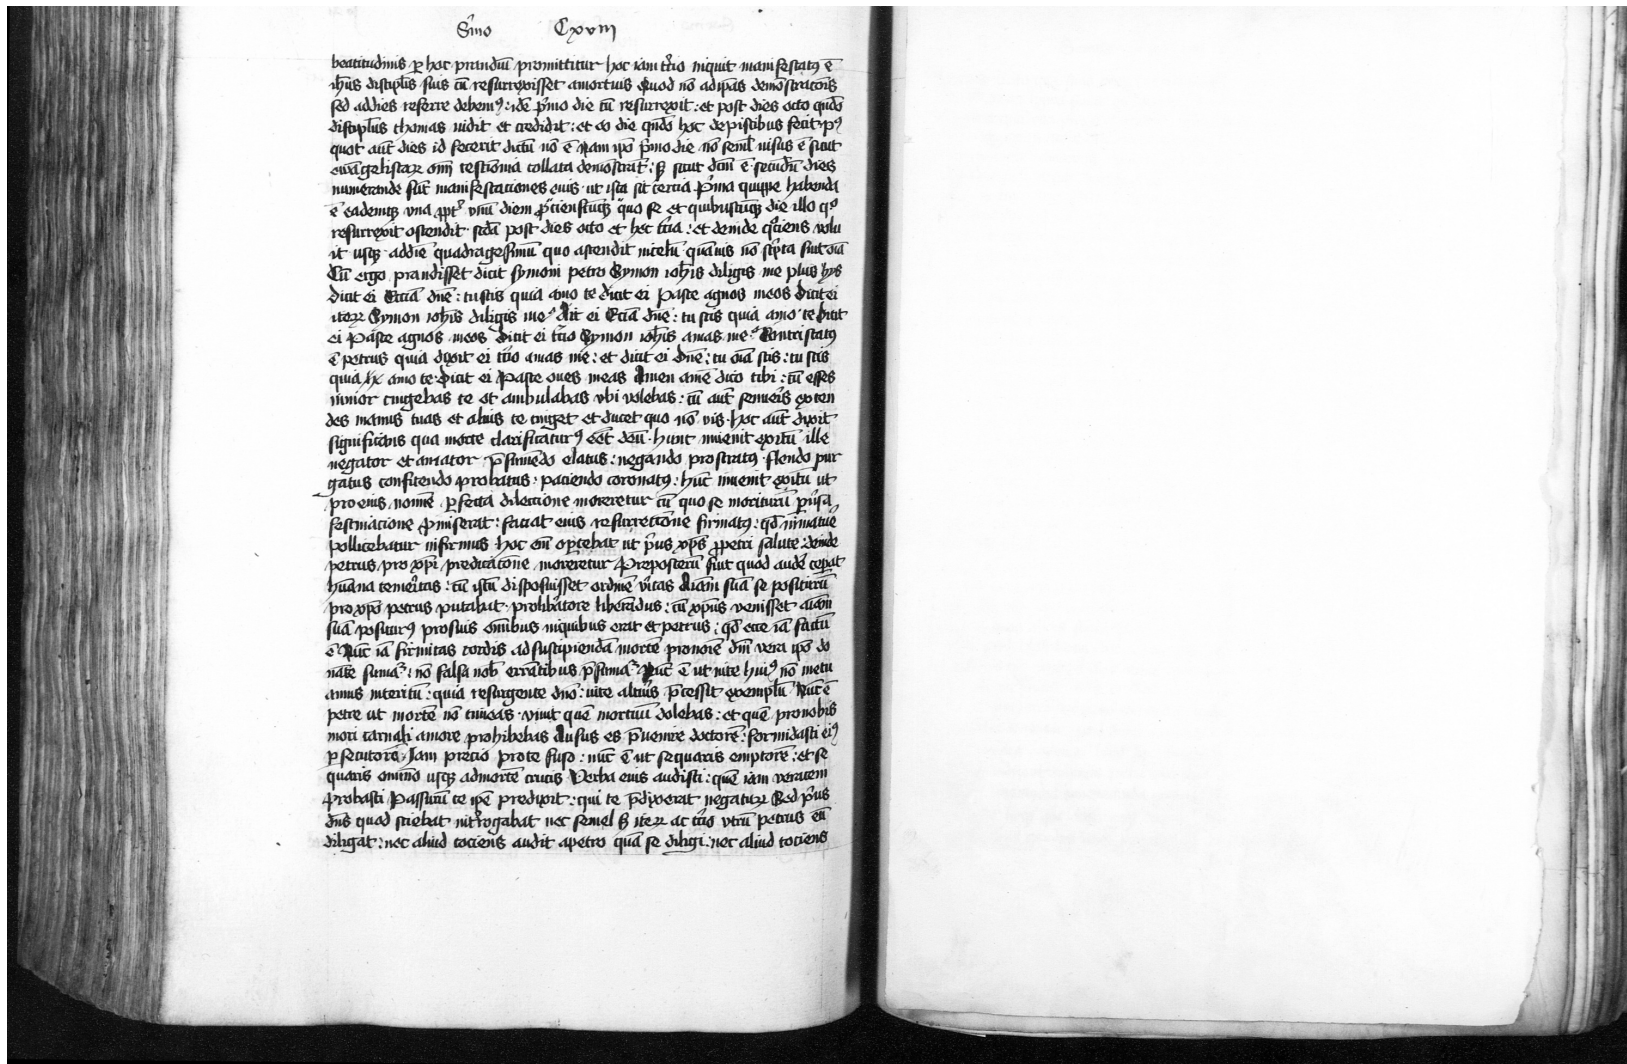 Sermo Cxviii
beatitudinis p hoc prandiū promittitur hoc iam tr̄cio inquit manifestatꝰ ē
ih̄us discipl̄is suis cū resurrexisset amortuis Quod nō adip̄as demōstracōis
sed addies referre debemꝰ : idē pͥmo die cū resurrexit : et post dies octo qn̄do
discipl̄us thomas uidit et credidit : et eo die qn̄do hoc de piscibus fecit pꝰ
quot aūt dies id fecerit dictū nō ē Nam ip̄o pͥmo die nō seml̄ uisus ē sicut
ewāgelistaꝝ om̄ testīonia collata demōstrāt : sꝫ sicut dcm̄ ē secūdū dies
numerande sūt manifestaciones eius ut ista sit tercia Pͥma quippe habenda
ē eademqꝫ una ꝓptꝰ unū diem quo se et quibuscūqꝫ die illo qͦ
resurrexit ostendit scd̄a post dies octo et hec tc̄ia : et deinde qͦciens uolu
it usqꝫ addiē quadragesimū quo ascendit incelū quāuis nō scͥpta sint oīa
Cū ergo prandisset dicit symoni petro Symon ioh̄is diligis me plus hys
dicit ei Eciā dn̄e : tu scis quia amo te dicit ei Pasce agnos meos dicit ei
iteꝝ Symon ioh̄is diligis me Ait ei Eciā dn̄e : tu scis quia amo te Dicit
ei Pasce agnos meos Dicit ei tc̄io Symon ioh̄is amas me Contristatꝰ
ē petrus quia dixit ei tc̄io amas me : et dicit ei Dn̄e : tu oīa scis : tu scis
quia amo te Dicit ei Pasce oues meas Amen amē dico tibi : cū esses
iunior cingebas te et ambulabas ubi uolebas : cū aūt senueris exten
des manus tuas et alius te cinget et ducet quo nō uis Hoc aūt dixit
significāns qua morte clarificaturꝰ eēt deū Hunc inuenit exitū ille
negator et amator p̄sumēdo elatus : negando prostratꝰ flendo pur
gatus confitendo probatus : paciendo coronatꝰ : huc̄ inuenit exitū ut
pro eius nomīe pfecta dileccione moreretur cū quo se moriturū puersa
festinacione ꝓmiserat : faciat eius resurrectiōne firmatꝰ : qd̄ inmatue
pollicebatur infirmus Hoc em̄ oportebat ut pͥus xp̄s ꝓ petri salute : deinde
petrus pro xp̄i predicacōne moreretur Preposterū fuit quod audē ceperat
huāna temeritas : cū istū disposuisset ordinē ueritas Aīam suā se positurū
pro xp̄o petrus putabat pro libatore liberādus : cū xp̄us venisset aīam
suā positurꝰ pro suis om̄ibus in quibus erat et petrus : qd̄ ecce iā factū
ē Nūc iā firmitas cordis ad suscipiendā mortē pro noīe dn̄i uera ip̄o do
nāte sumāͬ : nō falsa nob̄ errātibus p̄sumāͬ Nūc ē ut uite huiꝰ nō metu
amus interitū : quia resurgente dn̄o : uite altiͥus p̄cessit exemplū Nūc ē
petre ut mortē nō timeas uiuit quē mortuū dolebas : et quē pro nobis
mori carnali amore prohibebas Ausus es p̄uenire doctorē : formidasti eiꝰ
psecutorē Iam precio pro te fuso : nūc ē ut sequaris emptorē : et se
quaris omīno usqꝫ ad mortē crucis Verba eius audisti : quē iam ueracem
probasti Passurū te ip̄e predixit : qui te p̄dixerat negaturꝝ Sed pͥus
dn̄s quod sciebat intͥrogabat nec semel sꝫ iteꝝ ac tc̄io utrū petrus eū
diligat : nec aliud tociens audit a petro quā se diligi : nec aliud tociens